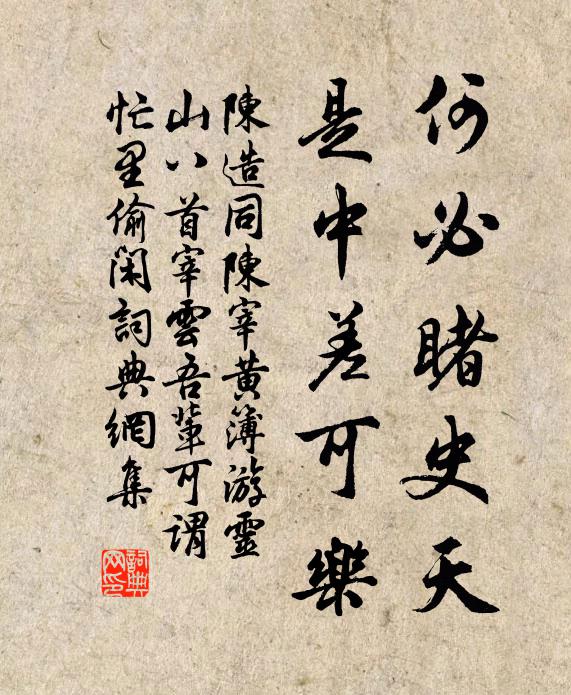 何必睹史天
是中差可樂
陳造同陳宰黄簿游靈
山八首宰雲吾輩可謂
忙里偷閑詞典網集
詞典
网印